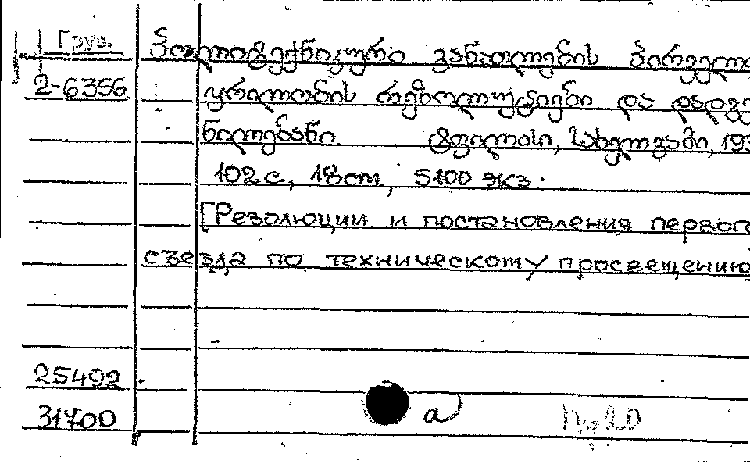 Груз.
პოლიტექნიკური განათლების პირველი
2-6356
ყრილობის რეზოლუციები და დადგე
ნილებანი. ტფილისი, სახელგამი, 193
102 с, 18 cm, 5100 экз.
[Резолюции и постановления первого
съезда по техническому просвещению
25492
31700
a)